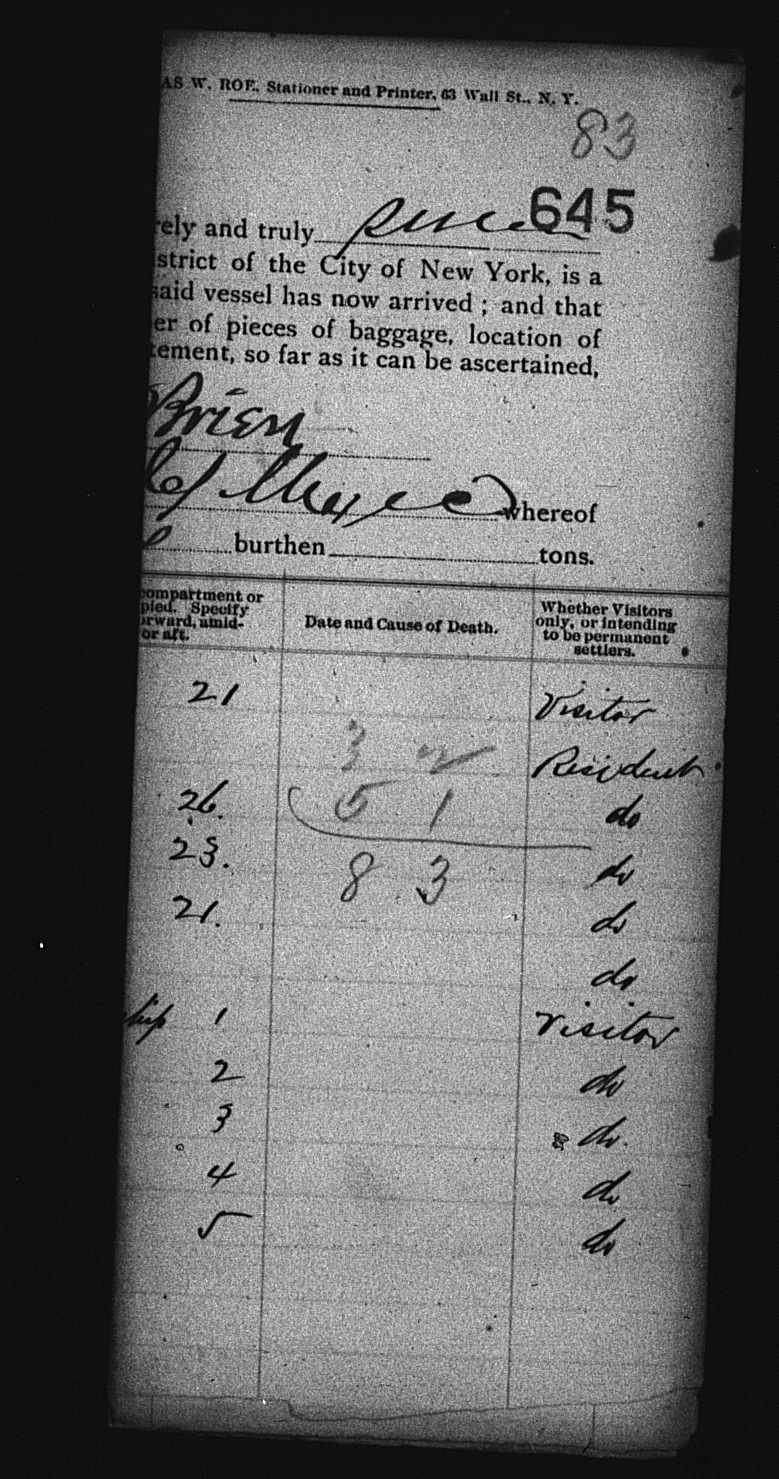 AS W. ROE, Stationer and Printer, 63 Wall St., N. Y.
83
645
rely and truly
strict of the City of New York, is a
said vessel has now arrived ; and that
er of pieces of baggage, location of
tement, so far as it can be ascertained,
Brien
of Mexico whereof
burthen tons.
compartment or
pied. Specify
orward, amid-
or aft.
Date and Cause of Death.
Whether Visitors
only, or intending
to be permanent
settlers.
21 Visitor
3 2 Resident
26. 5 1 do
23. 8 3 do
21. do
do
ship 1 Visitor
2 do
3 do.
4 do
5 do